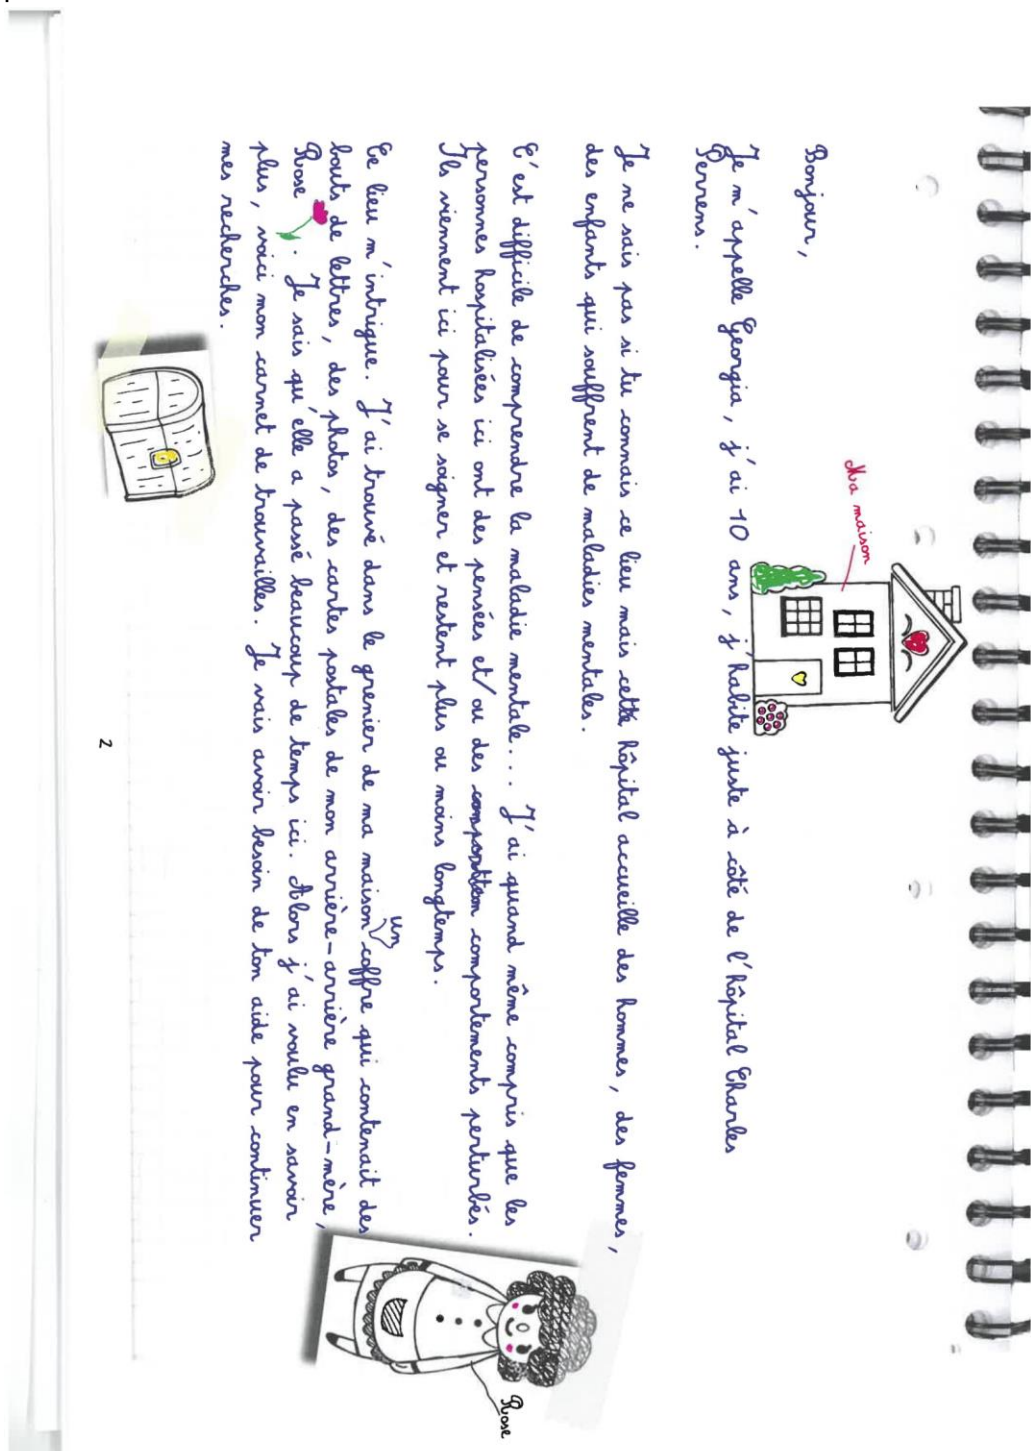 Bonjour,
Ma maison
Je m'appelle Georgia, j'ai 10 ans, j'habite juste à côté de l'hôpital Charles
Perrens.
Je ne sais pas si tu connais ce lieu mais cet hôpital accueille des hommes, des femmes,
des enfants qui souffrent de maladies mentales.
C'est difficile de comprendre la maladie mentale... J'ai quand même compris que les
personnes hospitalisées ici ont des pensées et/ou des comportements perturbés.
Ils viennent ici pour se soigner et restent plus ou moins longtemps.
Ce lieu m'intrigue. J'ai trouvé dans le grenier de ma maison un coffre qui contenait des
bouts de lettres, des photos, des cartes postales de mon arrière-arrière grand-mère,
Rose. Je sais qu'elle a passé beaucoup de temps ici. Alors j'ai voulu en savoir
plus, voici mon carnet de trouvailles. Je vais avoir besoin de ton aide pour continuer
mes recherches.
Rose
2